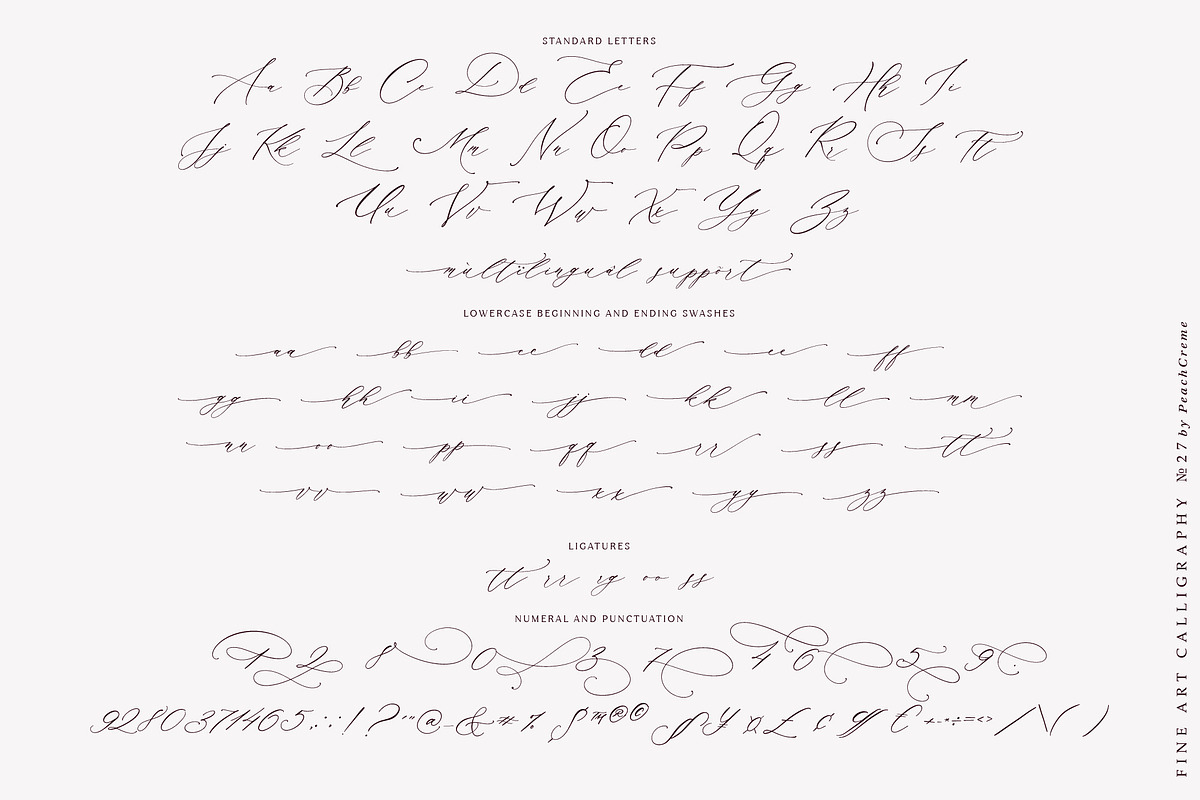 STANDARD LETTERS
Aa Bb Cc Dd Ee Ff Gg Hh Ii
Jj Kk Ll Mm Nn Oo Pp Qq Rr Ss Tt
Uu Vv Ww Xx Yy Zz
mùltïlinguàl suppòrt
LOWERCASE BEGINNING AND ENDING SWASHES
aa bb cc dd ee ff
gg hh ii jj kk ll mm
nn oo pp qq rr ss tt
vv ww xx yy zz
LIGATURES
tt rr rg oo ss
NUMERAL AND PUNCTUATION
1 2 8 0 3 7 4 6 5 9 .
9280371465.:,:!?"'@-&#%
™®©
¥¤£¢
€+-*÷=<>/\()
FINE ART CALLIGRAPHY №27 by PeachCreme